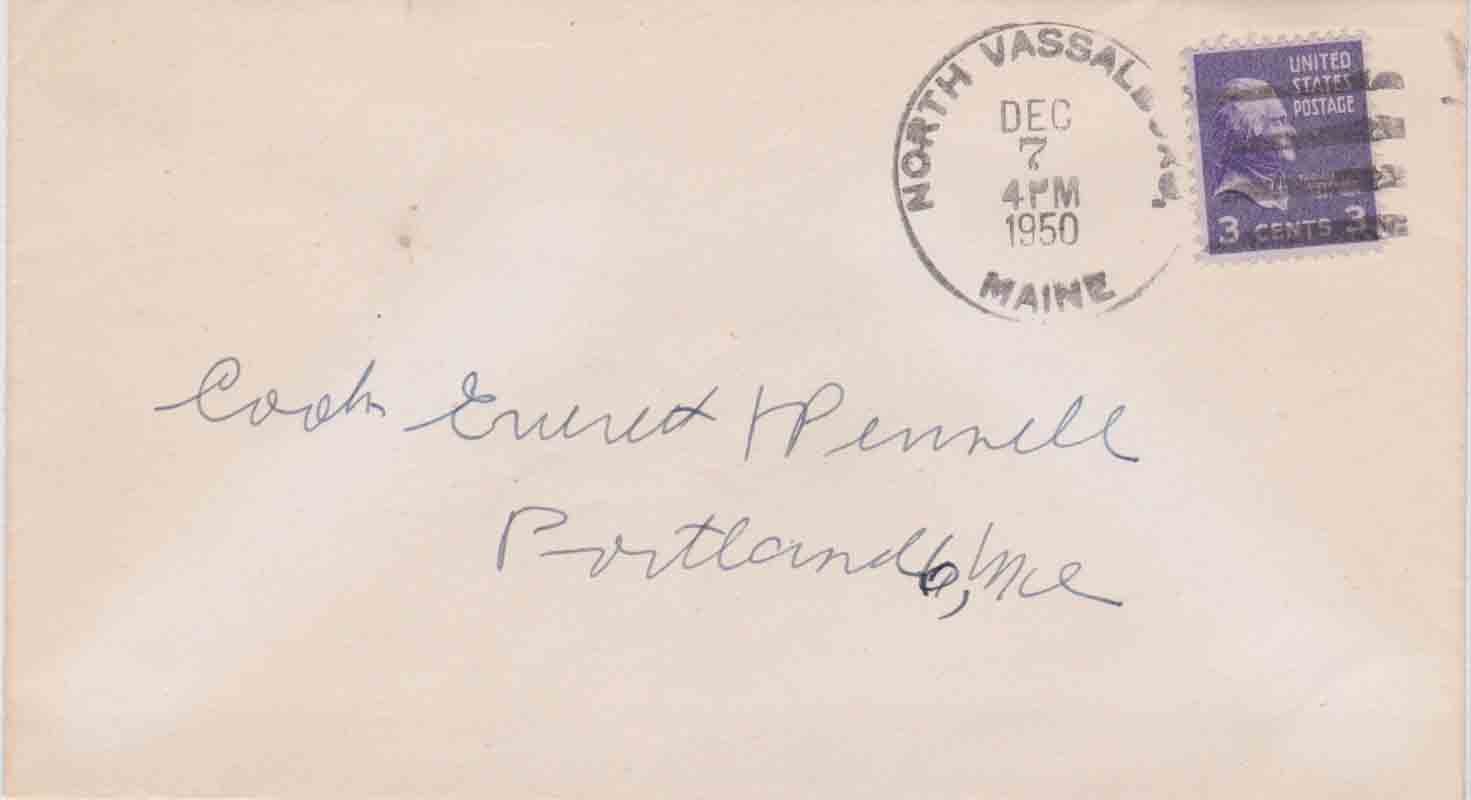 NORTH VASSALBORO
DEC
7
4 PM
1950
MAINE
UNITED
STATES
POSTAGE
3 CENTS 3
Cook Everett & Pennell
Portland 6, Me